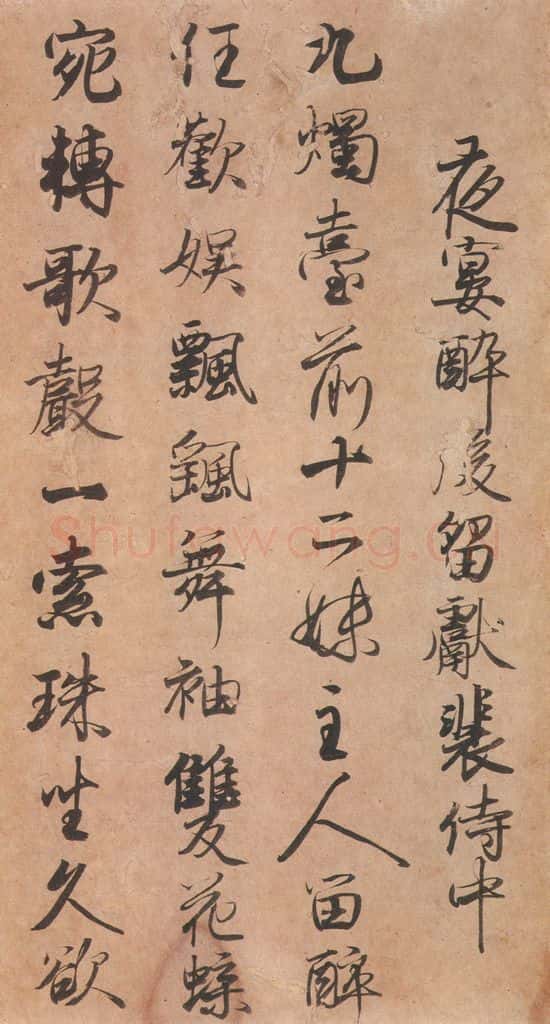 夜宴醉後留獻裴侍中
九燭臺前十二姝主人留醉
任歡娛飄飖舞袖雙花蝶
宛轉歌聲一索珠坐久欲
Shufawang.cn